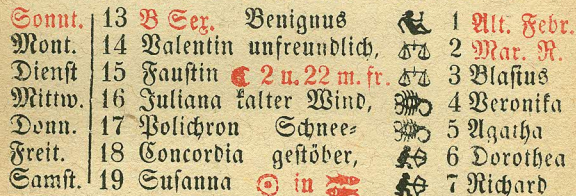 Sonnt. 13 B Sex. Benignus 1 Alt. Febr.
Mont. 14 Valentin unfreundlich, 2 Mar. R.
Dienst 15 Faustin 2 u. 22 m. fr. 3 Blasius
Mittw. 16 Juliana kalter Wind, 4 Veronika
Donn. 17 Polichron Schnee= 5 Agatha
Freit. 18 Concordia gestöber, 6 Dorothea
Samst. 19 Susanna ☉ in ♓ 7 Richard